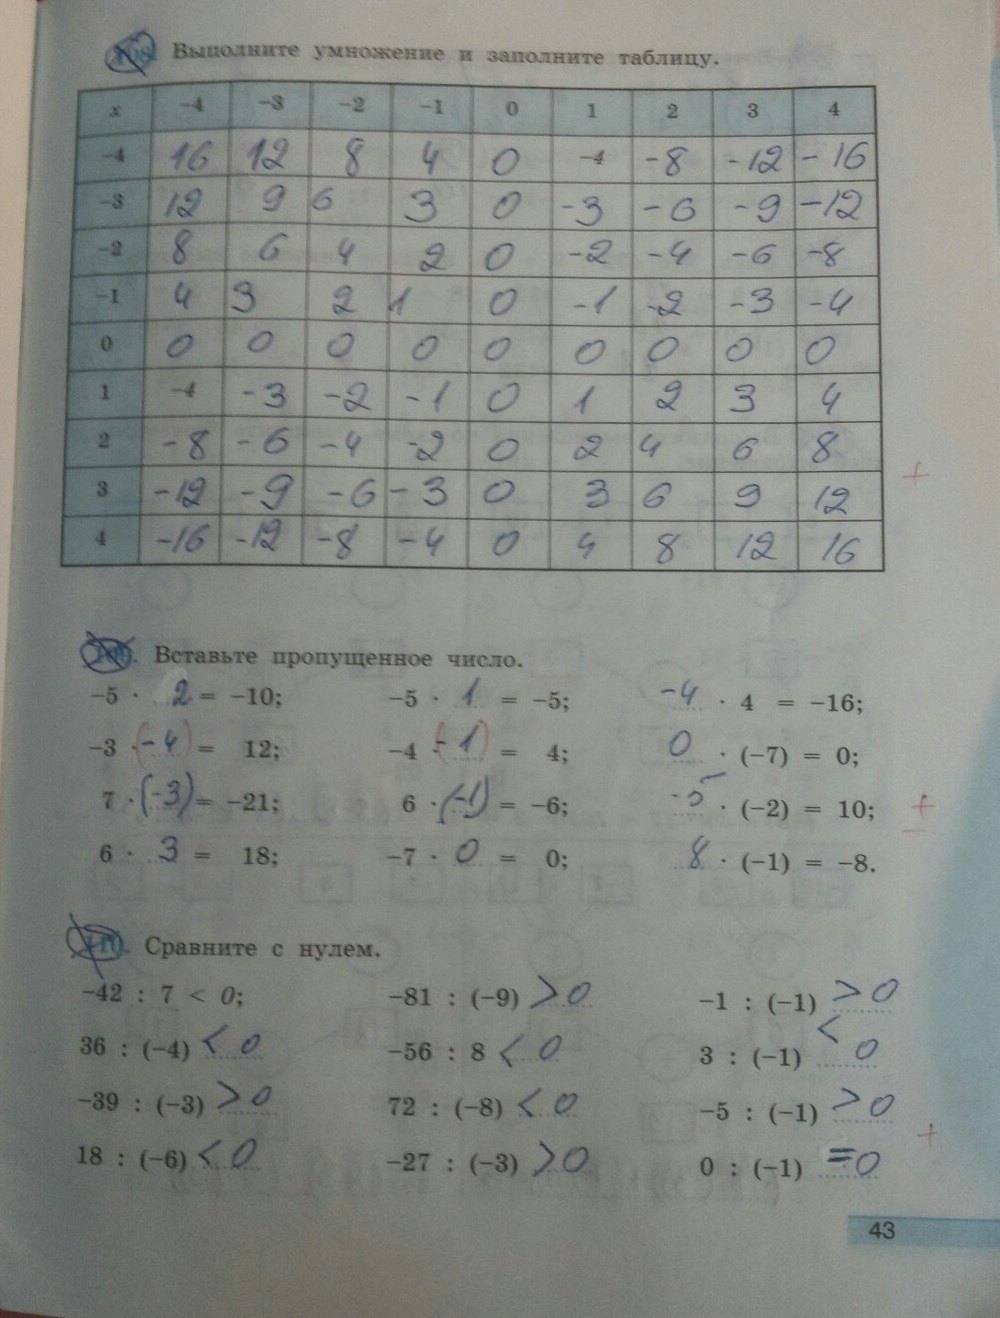 Выполните умножение и заполните таблицу.
x −4 −3 −2 −1 0 1 2 3 4
−4 16 12 8 4 0 −4 −8 −12 −16
−3 12 9 6 3 0 −3 −6 −9 −12
−2 8 6 4 2 0 −2 −4 −6 −8
−1 4 3 2 1 0 −1 −2 −3 −4
0 0 0 0 0 0 0 0 0 0
1 −4 −3 −2 −1 0 1 2 3 4
2 −8 −6 −4 −2 0 2 4 6 8
3 −12 −9 −6 −3 0 3 6 9 12
4 −16 −12 −8 −4 0 4 8 12 16
+
Вставьте пропущенное число.
−5 · 2 = −10; −5 · 1 = −5; −4 · 4 = −16;
−3 · (−4) = 12; −4 (−1) = 4; 0 · (−7) = 0;
7 · (−3) = −21; 6 · (−1) = −6; −5 · (−2) = 10;
+
6 · 3 = 18; −7 · 0 = 0; 8 · (−1) = −8.
Сравните с нулем.
−42 : 7 < 0; −81 : (−9) > 0 −1 : (−1) > 0
36 : (−4) < 0 −56 : 8 < 0 3 : (−1) < 0
−39 : (−3) > 0 72 : (−8) < 0 −5 : (−1) > 0
18 : (−6) < 0 −27 : (−3) > 0 0 : (−1) = 0
+
43